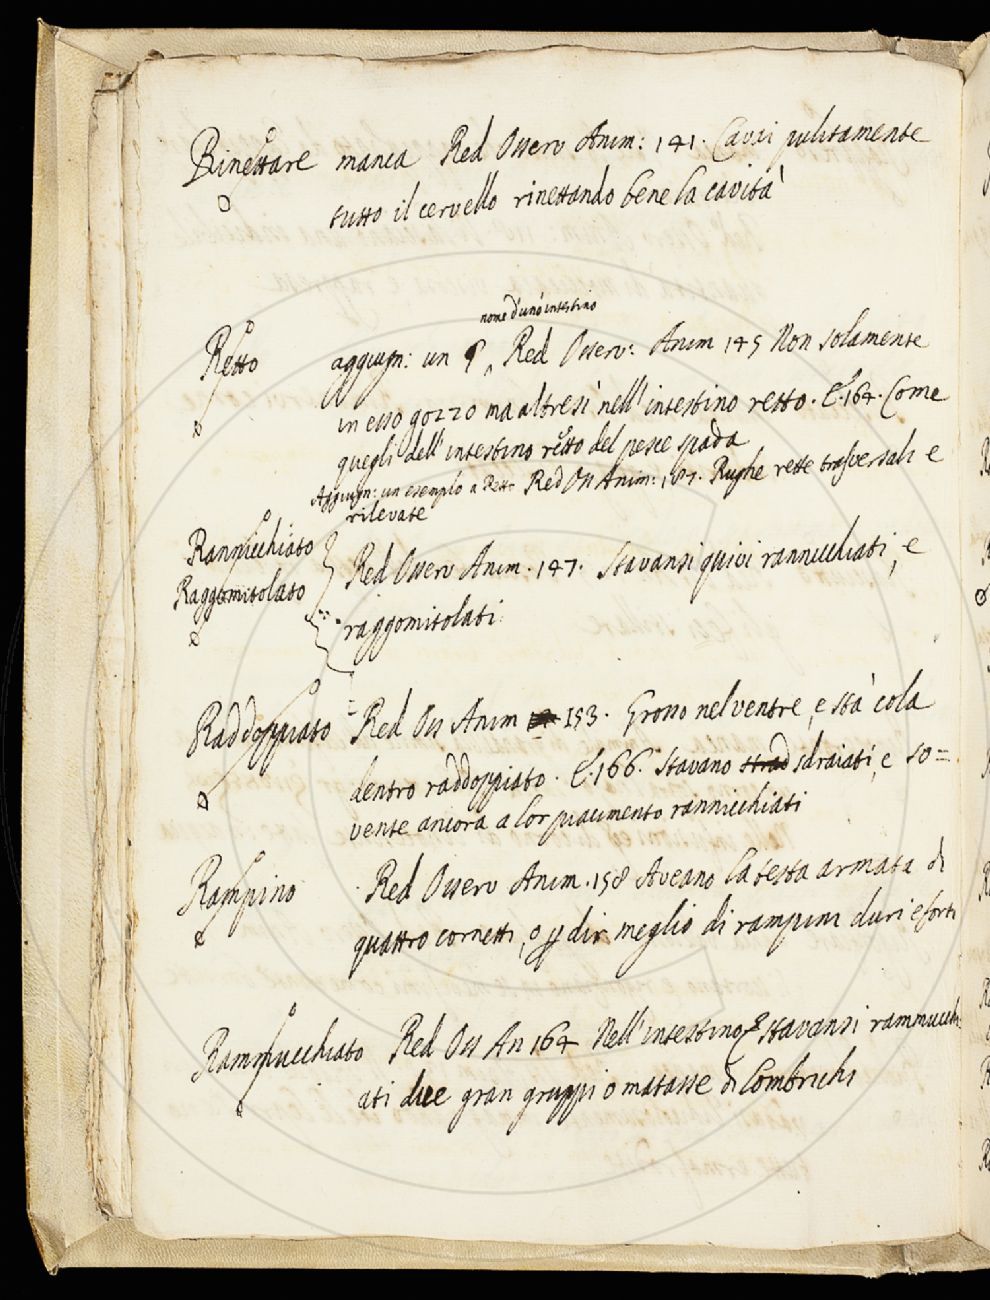 Rinettare manca Red Osserv Anim: 141. Cavai pulitamente
tutto il cervello rinettando bene la cavità
nome d'uno intestino
Retto aggiugn: un §, Red Osserv: Anim 145 Non solamente
in esso gozzo ma altresì nell'intestino retto. E. 164. Come
quegli dell'intestino retto del pesce spada
Aggiugn: un esempio a Retto Red Oss Anim: 187. Rughe rette trasversali e
rilevate
Rannicchiato
Raggomitolato
Red Osserv Anim. 147. Stavansi quivi rannicchiati, e
raggomitolati
Raddoppiato Red Oss Anim 153. Grosso nel ventre, e stà colà
dentro raddoppiato. E. 166. Stavano strad sdraiati, e so=
vente ancora a lor piacimento rannicchiati
Rampino Red Osserv Anim. 158 Aveano la testa armata di
quattro cornetti, o p dir meglio di rampini duri e forti
Rammucchiato Red Oss An 164 Nell'intestino stavansi rammucchi
ati due gran gruppi o matasse di Lombrichi